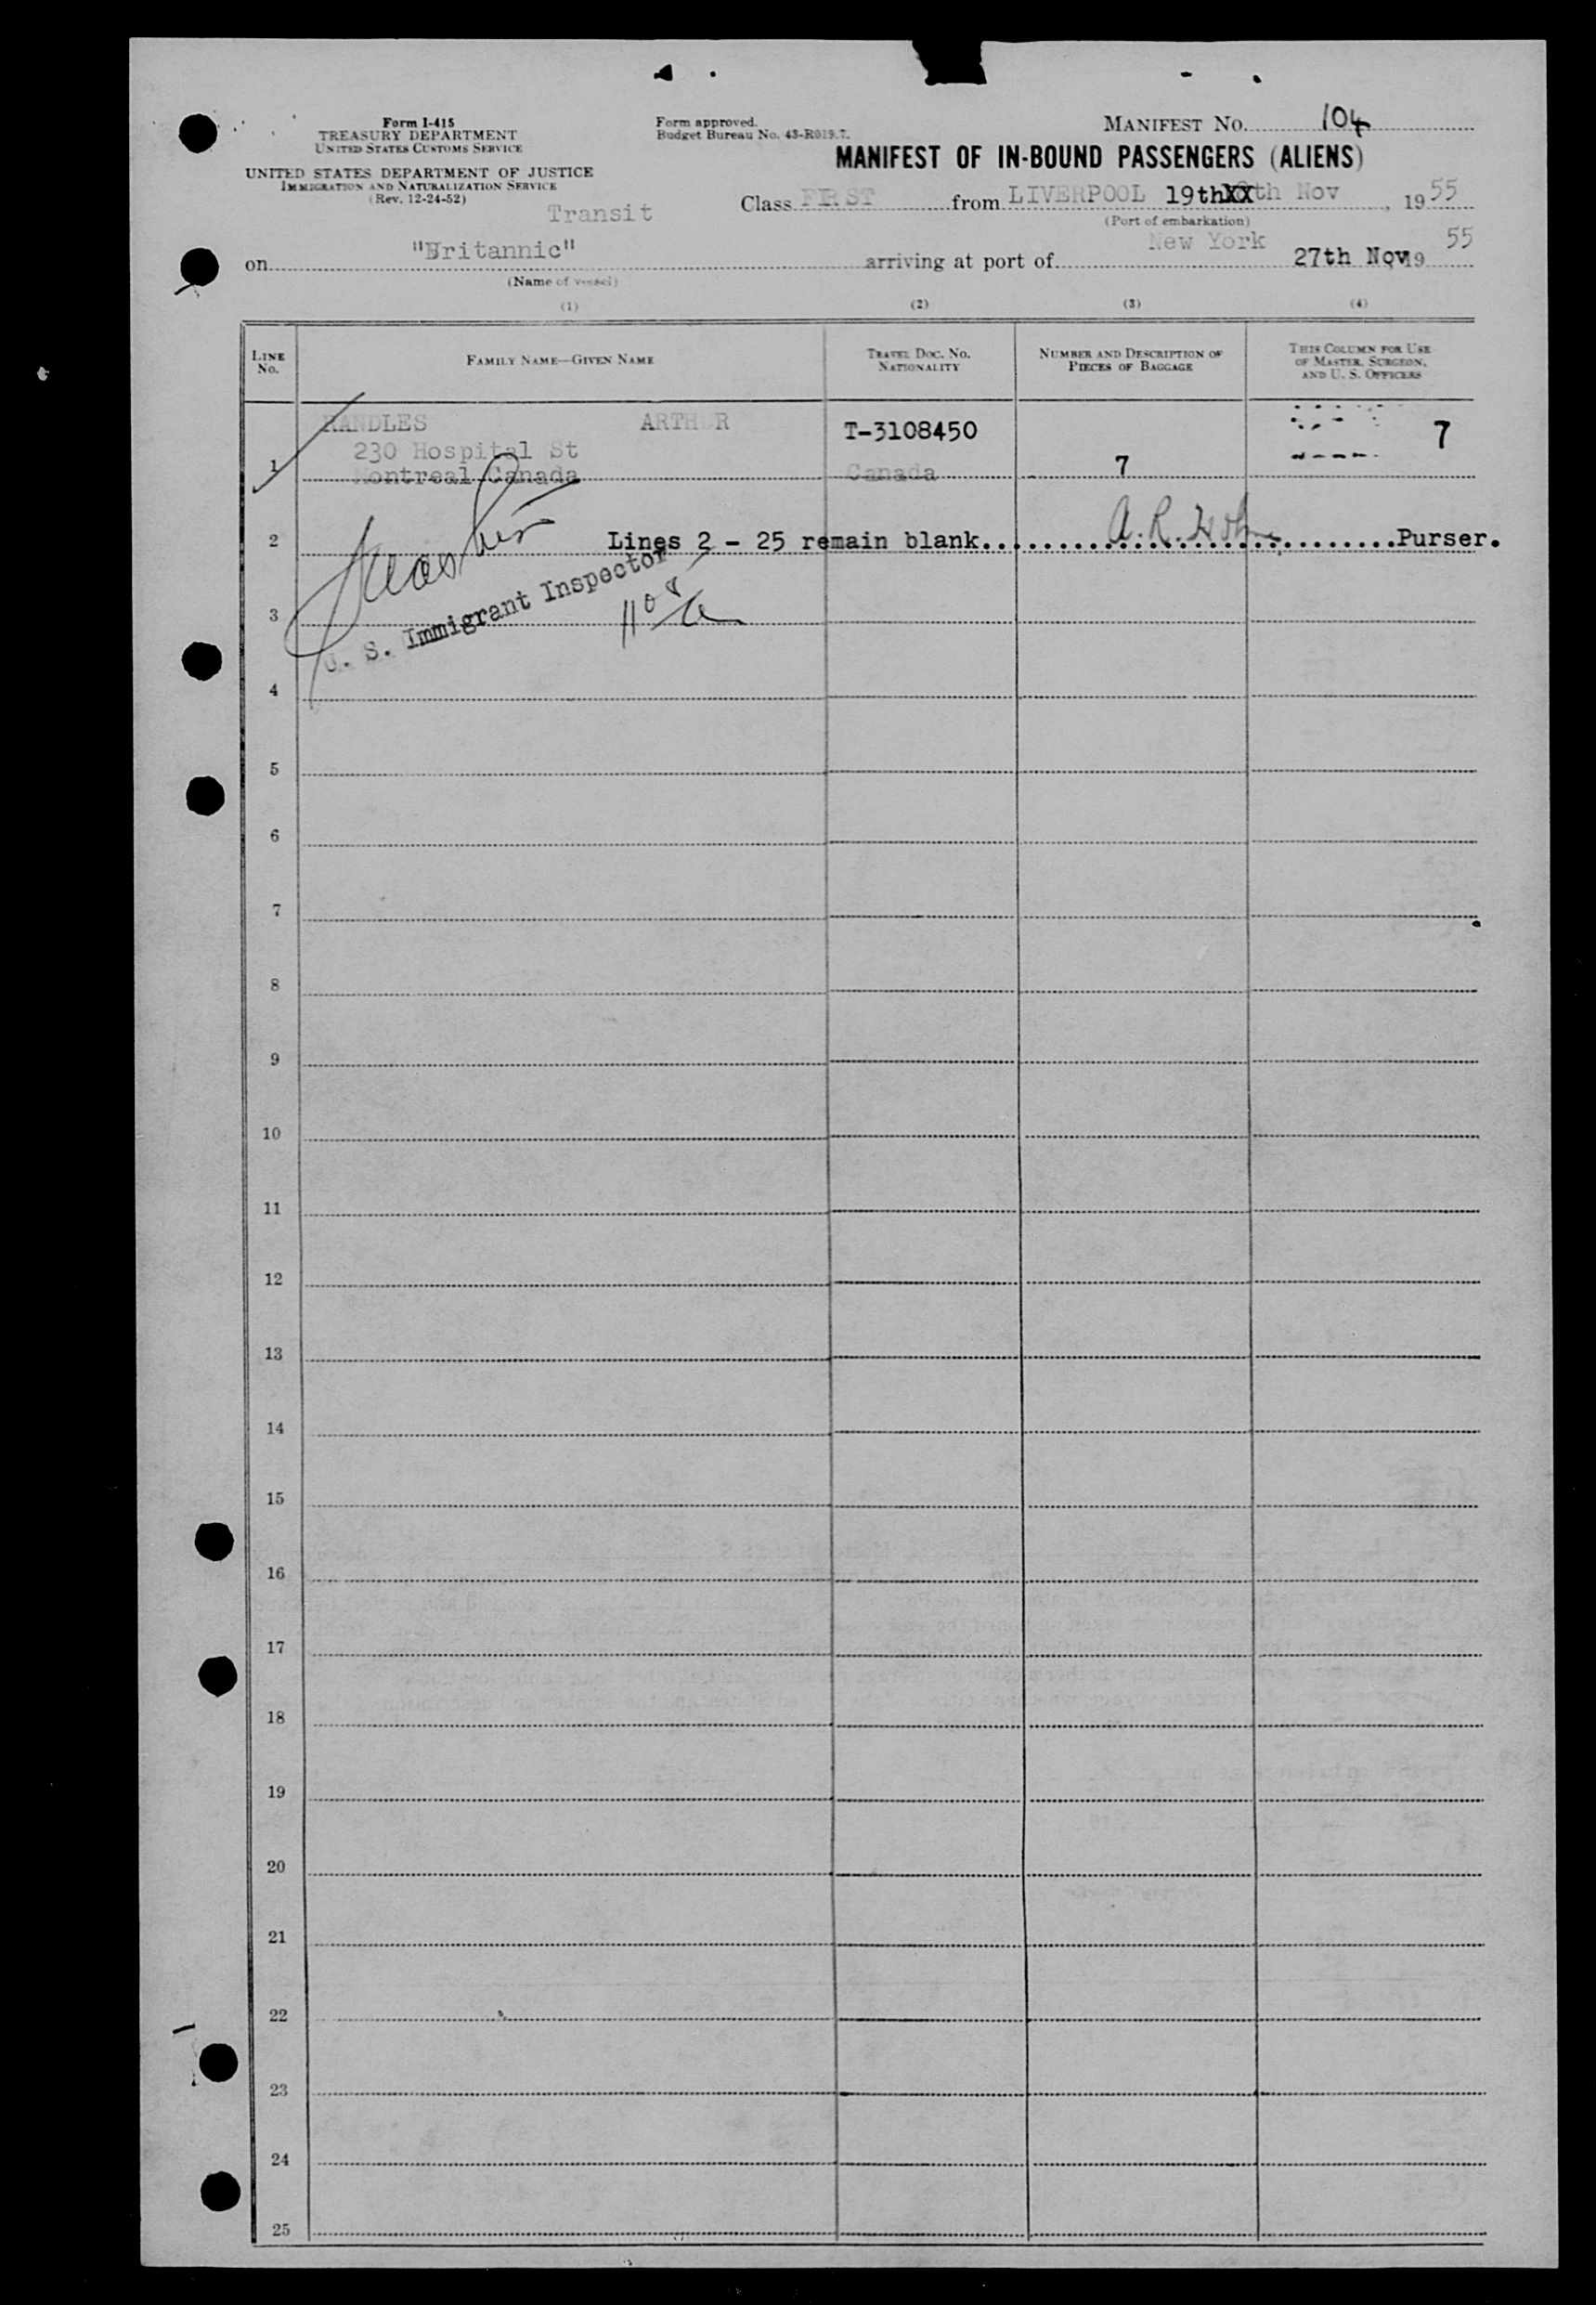 Form I-415
TREASURY DEPARTMENT
UNITED STATES CUSTOMS SERVICE
UNITED STATES DEPARTMENT OF JUSTICE
IMMIGRATION AND NATURALIZATION SERVICE
(Rev. 12-24-52)
Form approved.
Budget Bureau No. 43-R019.7.
MANIFEST NO. 104
MANIFEST OF IN-BOUND PASSENGERS (ALIENS)
Transit
Class FIRST from LIVERPOOL 19thXXth Nov, 1955
(Port of embarkation)
on "Britannic" arriving at port of New York 27th Nov 1955
(Name of vessel)
(1) (2) (3) (4)
LINE No. FAMILY NAME—GIVEN NAME TRAVEL DOC. NO. NATIONALITY NUMBER AND DESCRIPTION OF PIECES OF BAGGAGE THIS COLUMN FOR USE OF MASTER, SURGEON, AND U. S. OFFICERS
1 RANDLES ARTHUR T-3108450 7
230 Hospital St
Montreal Canada Canada 7
2 Lines 2 - 25 remain blank. A. R. Purser.
U. S. Immigrant Inspector
3
4
5
6
7
8
9
10
11
12
13
14
15
16
17
18
19
20
21
22
23
24
25